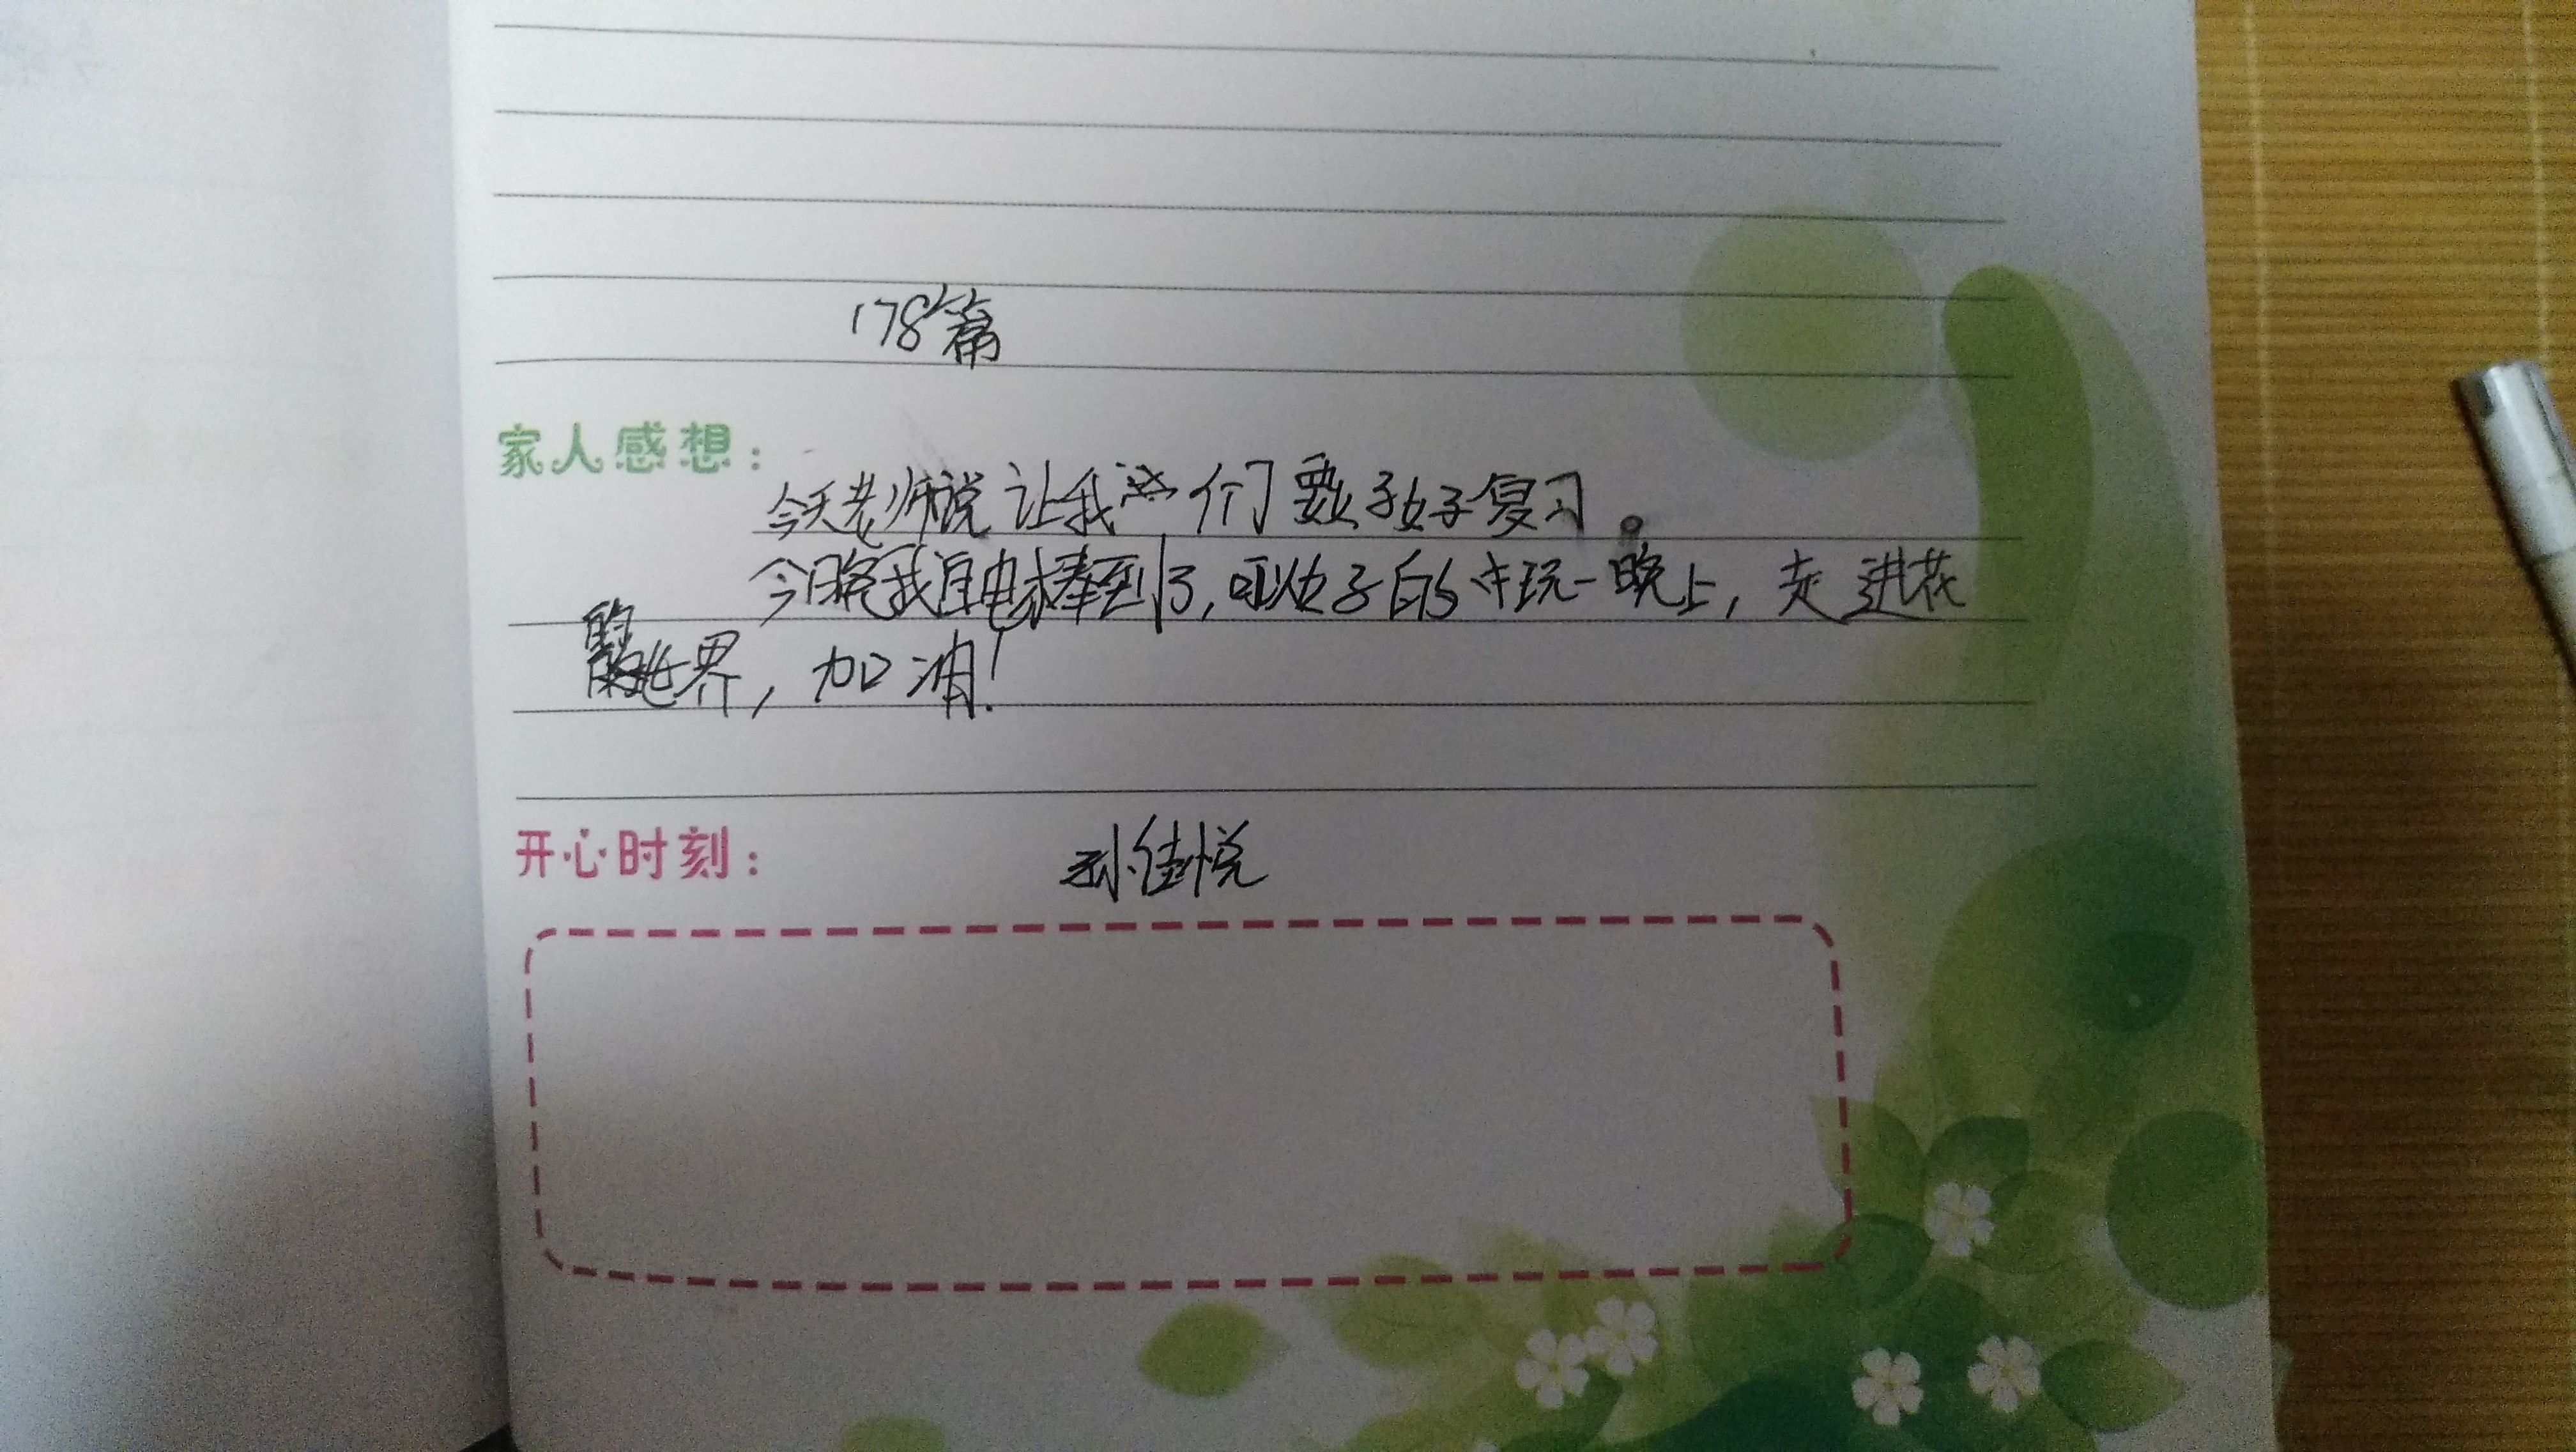 178篇
家人感想:
今天老师说让我们要好好复习。
今晚我自电棒到了,可以好好的玩一晚上,走进花
的世界,加油!
开心时刻: 孙佳悦